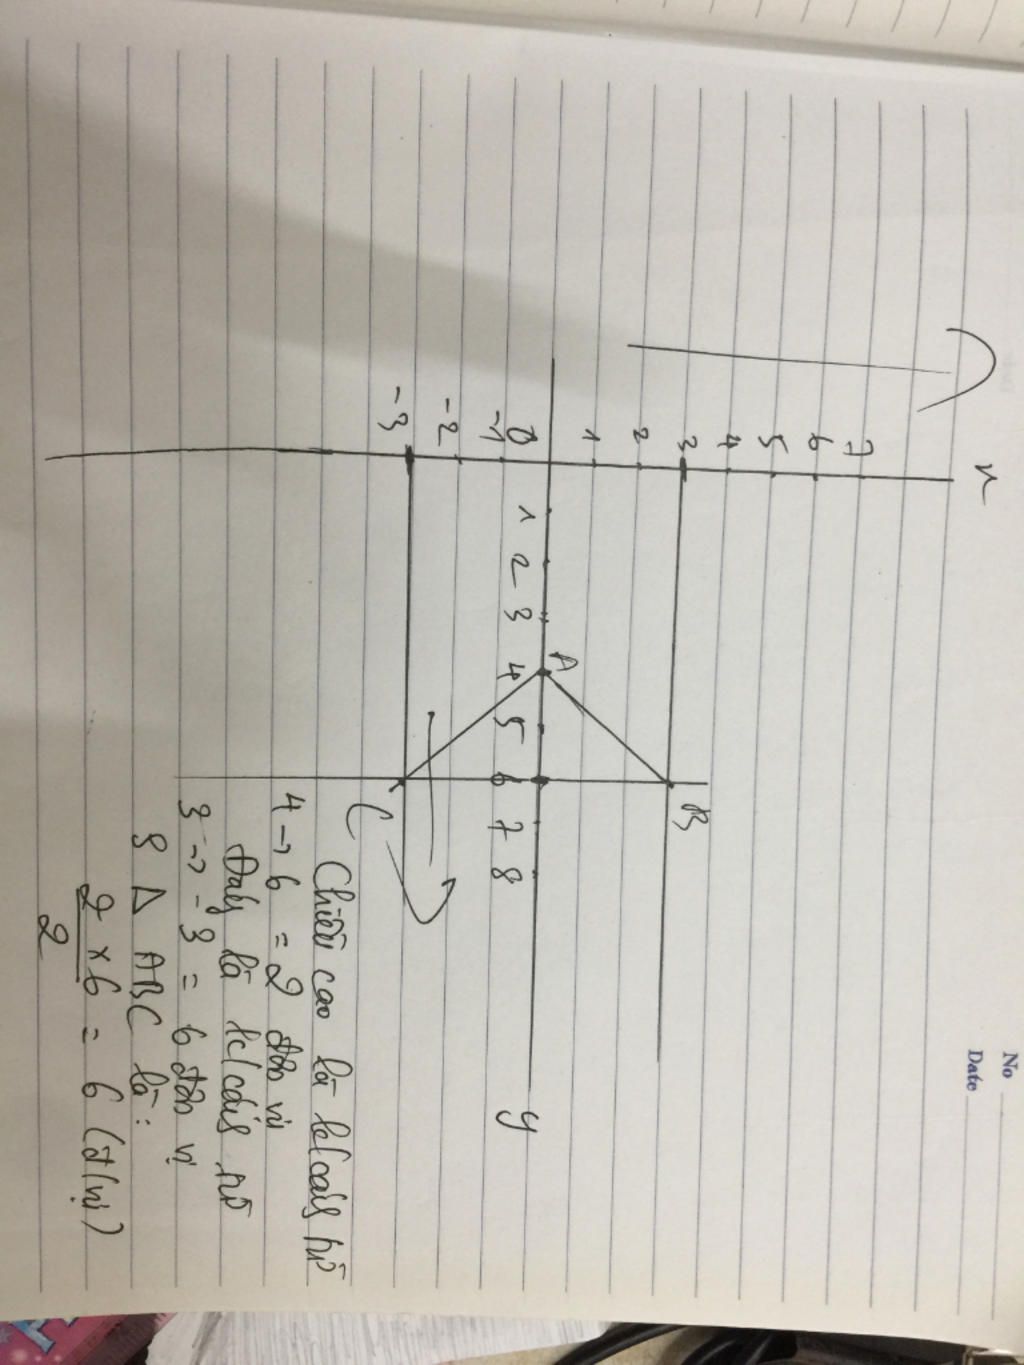 No
Date
x
7
6
5
4
3
2
1
0
-1
-2
-3
1 2 3 4 5 6 7 8
y
A
B
C
Chiều cao là k/cách từ
4 → 6 = 2 đơn vị
Đáy là k/cách từ
3 → -3 = 6 đơn vị
S Δ ABC là:
2 × 6 = 6 (đ/vị)
2